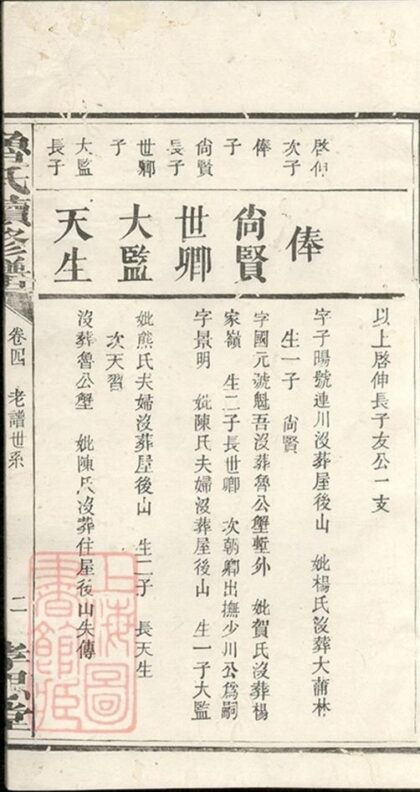 以上啓伸長子友公一支
啓伸次子
俸
字子暘號連川沒葬屋後山 妣楊氏沒葬大莆林
生一子 尙賢
俸子
尙賢
字國元號魁吾沒葬魯公壟塹外 妣賀氏沒葬楊
家嶺 生二子長世卿 次朝卿出撫少川公爲嗣
尙賢長子
世卿
字景明 妣陳氏夫婦沒葬屋後山 生一子大監
世卿子
大監
妣熊氏夫婦沒葬屋後山 生二子 長天生
次天習
大監長子
天生
沒葬魯公壟 妣陳氏沒葬住屋後山失傳
魯氏續修譜
卷四 老譜世系
二
孝思堂
上海圖書館藏